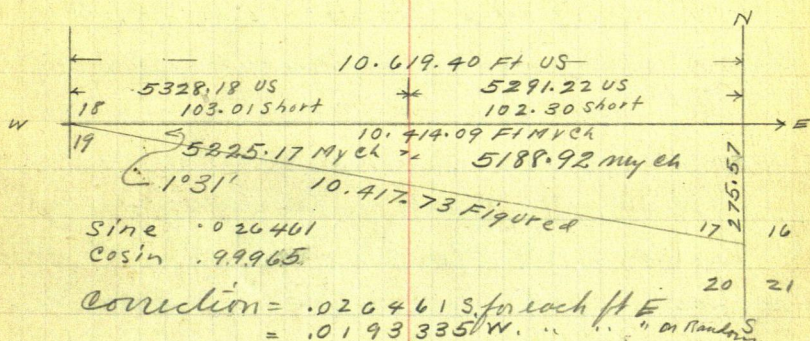 N
10.619.40 Ft US
5328.18 US 5291.22 US
103.01 Short 102.30 Short
18
W E
19 10.414.09 Ft MyCh
5225.17 MyCh " 5188.92 my ch
1°31' 10.417.73 Figured
275.57
17 16
Sine .026461
Cosin .99965
20 21
Correction = .026461 S. for each ft E
= .0193335 W. " " " on Random
S